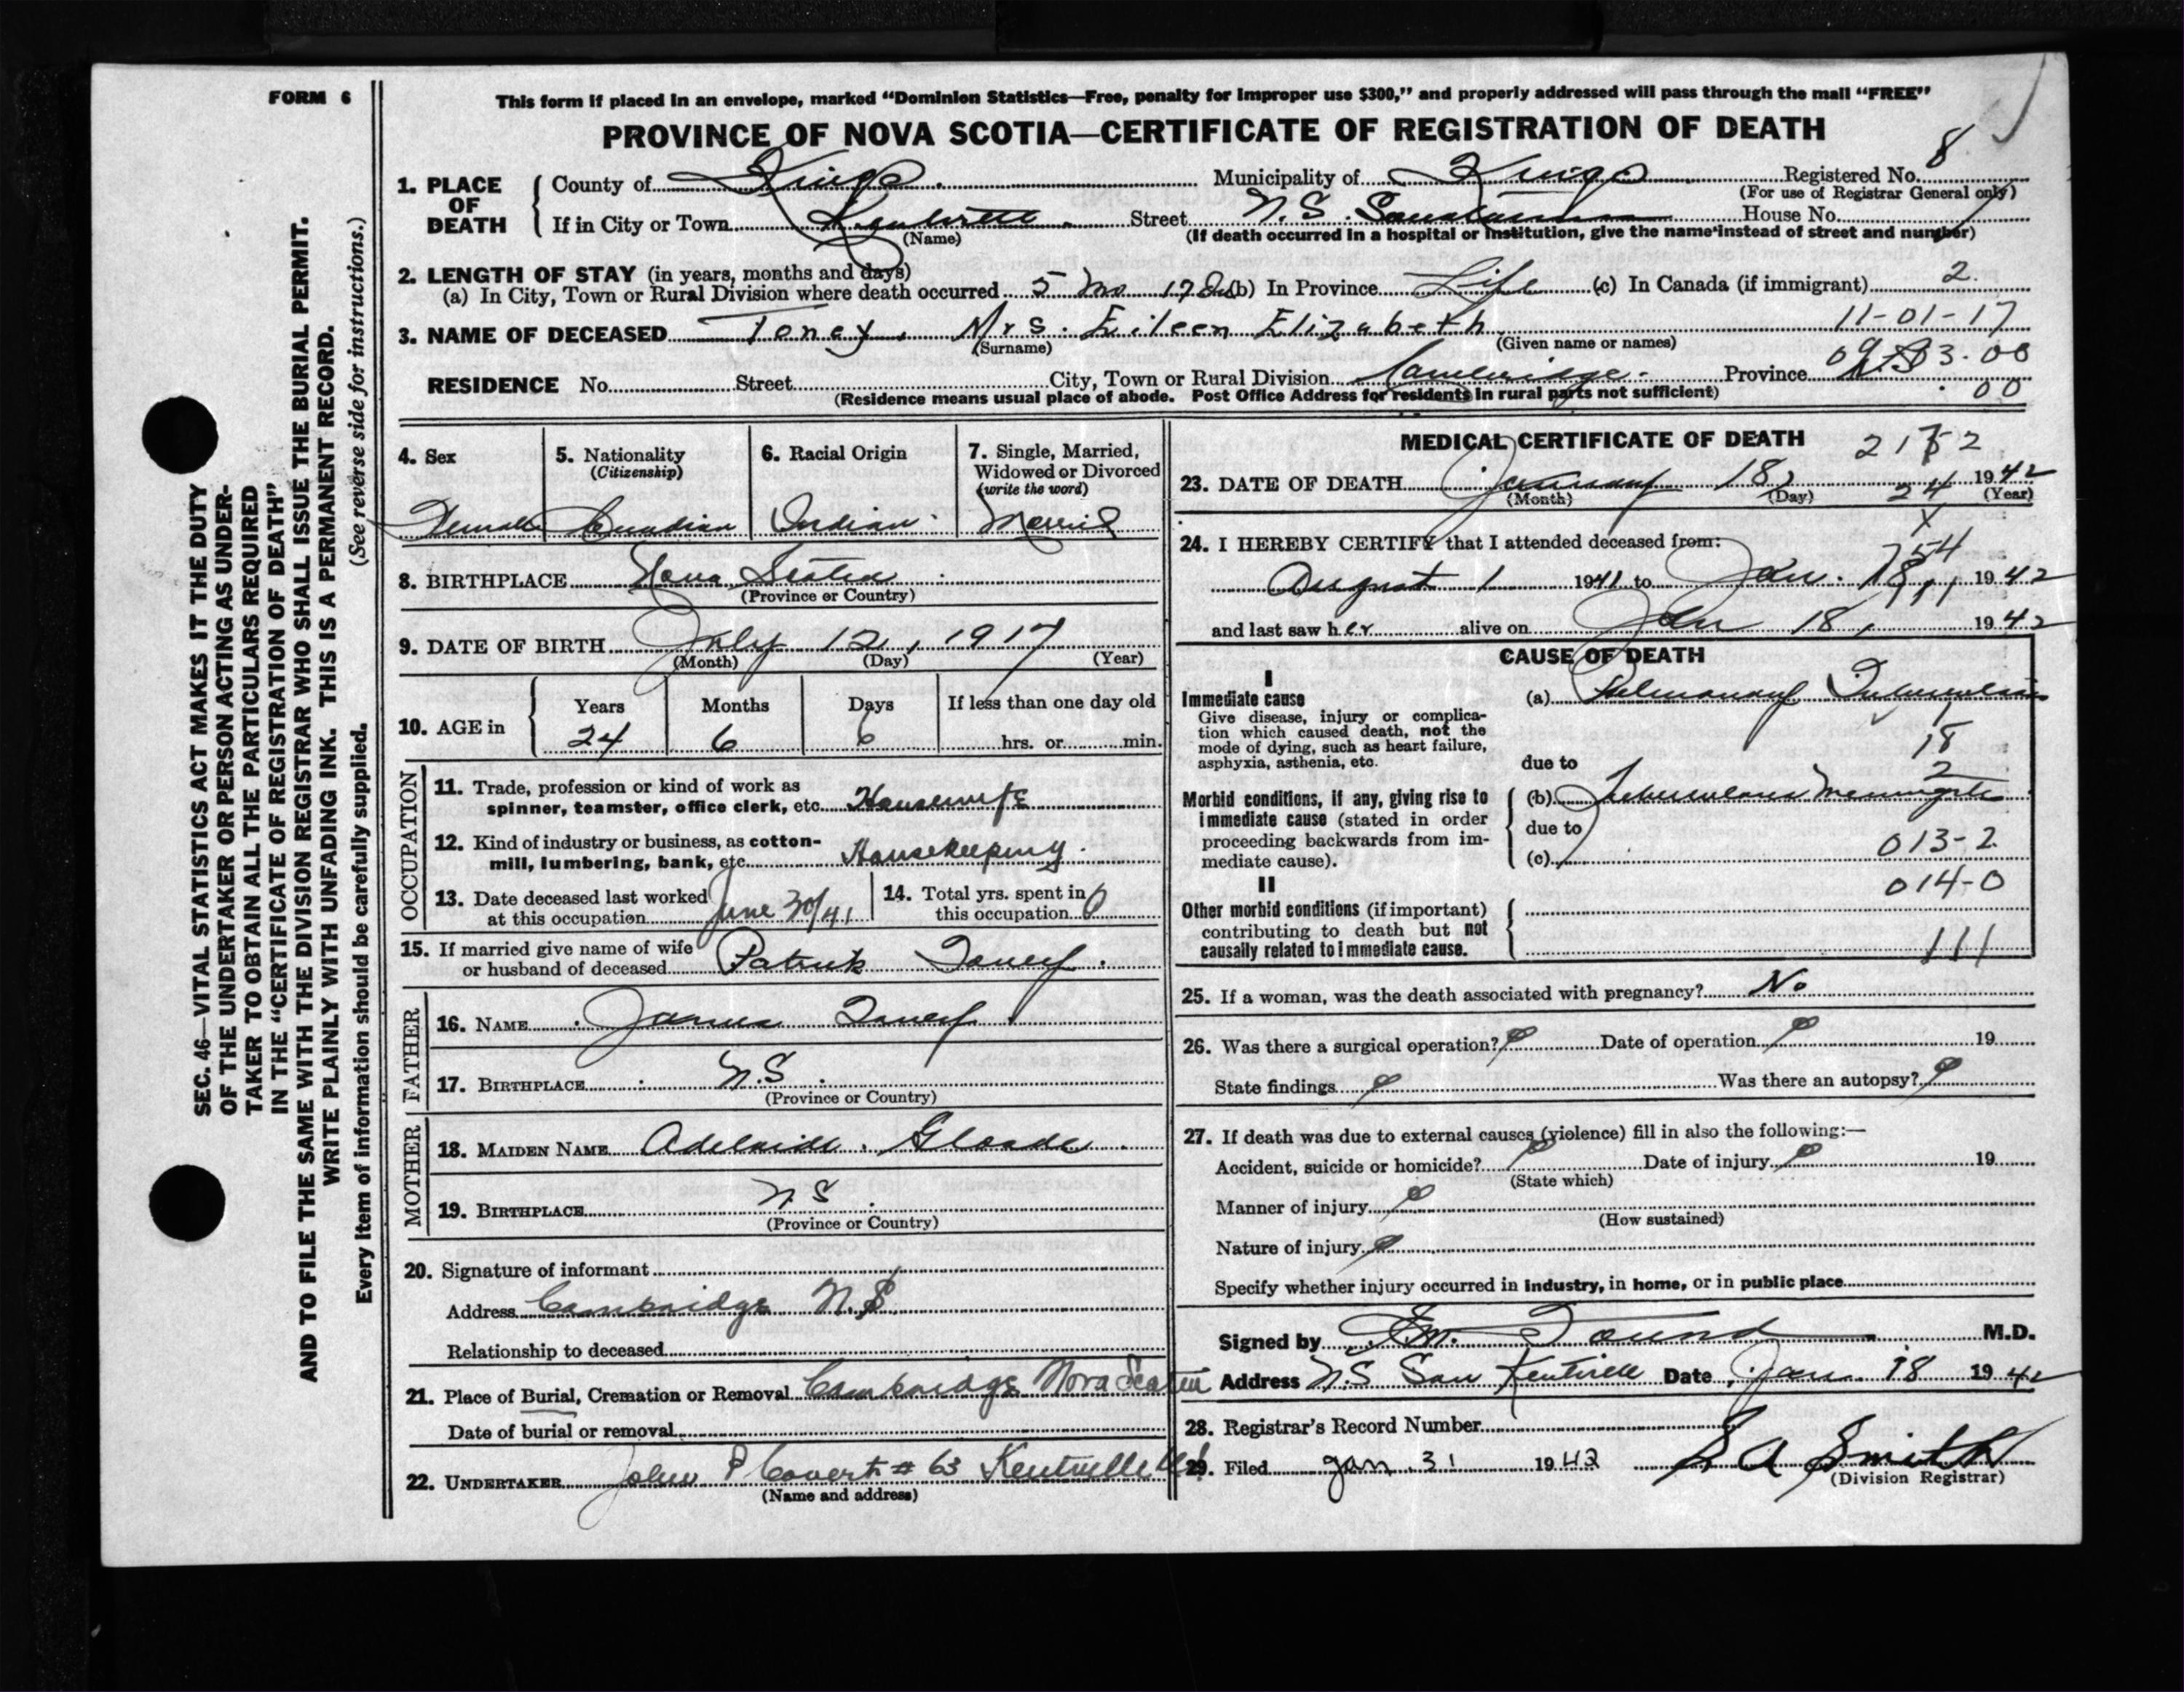 FORM 6
This form if placed in an envelope, marked "Dominion Statistics—Free, penalty for improper use $300," and properly addressed will pass through the mail "FREE"
PROVINCE OF NOVA SCOTIA—CERTIFICATE OF REGISTRATION OF DEATH
SEC. 46—VITAL STATISTICS ACT MAKES IT THE DUTY
OF THE UNDERTAKER OR PERSON ACTING AS UNDER-
TAKER TO OBTAIN ALL THE PARTICULARS REQUIRED
IN THE "CERTIFICATE OF REGISTRATION OF DEATH"
AND TO FILE THE SAME WITH THE DIVISION REGISTRAR WHO SHALL ISSUE THE BURIAL PERMIT.
WRITE PLAINLY WITH UNFADING INK. THIS IS A PERMANENT RECORD.
Every item of information should be carefully supplied. (See reverse side for instructions.)
1. PLACE OF DEATH
County of Kings Municipality of Kings Registered No. 8
(For use of Registrar General only)
If in City or Town Kentville Street N.S. Sanatorium House No.
(Name) (If death occurred in a hospital or institution, give the name instead of street and number)
2. LENGTH OF STAY (in years, months and days)
(a) In City, Town or Rural Division where death occurred 5 Mo 17 Ds (b) In Province Life (c) In Canada (if immigrant) 2
3. NAME OF DECEASED Toney, Mrs. Eileen Elizabeth 11-01-17
(Surname) (Given name or names)
RESIDENCE No. Street City, Town or Rural Division Cambridge Province N.S. 09-03-00
(Residence means usual place of abode. Post Office Address for residents in rural parts not sufficient) 00
4. Sex Female
5. Nationality (Citizenship) Canadian
6. Racial Origin Indian
7. Single, Married, Widowed or Divorced (write the word) Married
8. BIRTHPLACE Nova Scotia
(Province or Country)
9. DATE OF BIRTH July 12, 1917
(Month) (Day) (Year)
10. AGE in Years Months Days If less than one day old
24 6 6 hrs. or min.
OCCUPATION
11. Trade, profession or kind of work as
spinner, teamster, office clerk, etc. Housewife
12. Kind of industry or business, as cotton-
mill, lumbering, bank, etc. Housekeeping
13. Date deceased last worked
at this occupation June 30/41
14. Total yrs. spent in
this occupation 6
15. If married give name of wife
or husband of deceased Patrick Toney
FATHER
16. NAME James Toney
17. BIRTHPLACE N.S.
(Province or Country)
MOTHER
18. MAIDEN NAME Adelaide Gloade
19. BIRTHPLACE N.S.
(Province or Country)
20. Signature of informant
Address Cambridge N.S
Relationship to deceased
21. Place of Burial, Cremation or Removal Cambridge Nova Scotia
Date of burial or removal
22. UNDERTAKER John P Covert # 63 Kentville N.S.
(Name and address)
MEDICAL CERTIFICATE OF DEATH
23. DATE OF DEATH January 18, 1942
(Month) (Day) (Year)
24
24. I HEREBY CERTIFY that I attended deceased from:
August 1 1941 to Jan. 18, 1942
754
111
and last saw her alive on Jan 18, 1942
CAUSE OF DEATH
I
Immediate cause
Give disease, injury or complica-
tion which caused death, not the
mode of dying, such as heart failure,
asphyxia, asthenia, etc.
(a) Pulmonary Tuberculosis
18
2
due to
Morbid conditions, if any, giving rise to
immediate cause (stated in order
proceeding backwards from im-
mediate cause).
(b) Tuberculous Meningitis
due to
(c) 013-2
014-0
II
Other morbid conditions (if important)
contributing to death but not
causally related to immediate cause.
111
25. If a woman, was the death associated with pregnancy? No
26. Was there a surgical operation? Date of operation 19
State findings Was there an autopsy?
27. If death was due to external causes (violence) fill in also the following:—
Accident, suicide or homicide? Date of injury 19
(State which)
Manner of injury
(How sustained)
Nature of injury
Specify whether injury occurred in industry, in home, or in public place
Signed by M.D.
Address N.S San Kentville Date Jan. 18 1942
28. Registrar's Record Number
29. Filed Jan 31 1942 S A Smith
(Division Registrar)